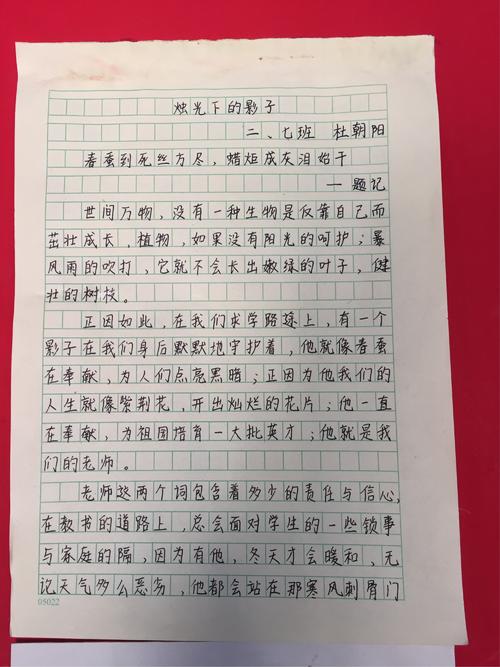 烛光下的影子
二、七班 杜朝阳
春蚕到死丝方尽，蜡炬成灰泪始干
—题记
世间万物，没有一种生物是仅靠自己而
茁壮成长，植物，如果没有阳光的呵护；暴
风雨的吹打，它就不会长出嫩绿的叶子，健
壮的树枝。
正因如此，在我们求学路途上，有一个
影子在我们身后默默地守护着，他就像春蚕
在奉献，为人们点亮黑暗；正因为他我们的
人生就像紫荆花，开出灿烂的花片；他一直
在奉献，为祖国培育一大批英才；他就是我
们的老师。
老师这两个词包含着多少的责任与信心，
在教书的道路上，总会面对学生的一些锁事
与家庭的隔，因为有他，冬天才会暖和，无
论天气多么恶劣，他都会站在那寒风刺骨门
05022